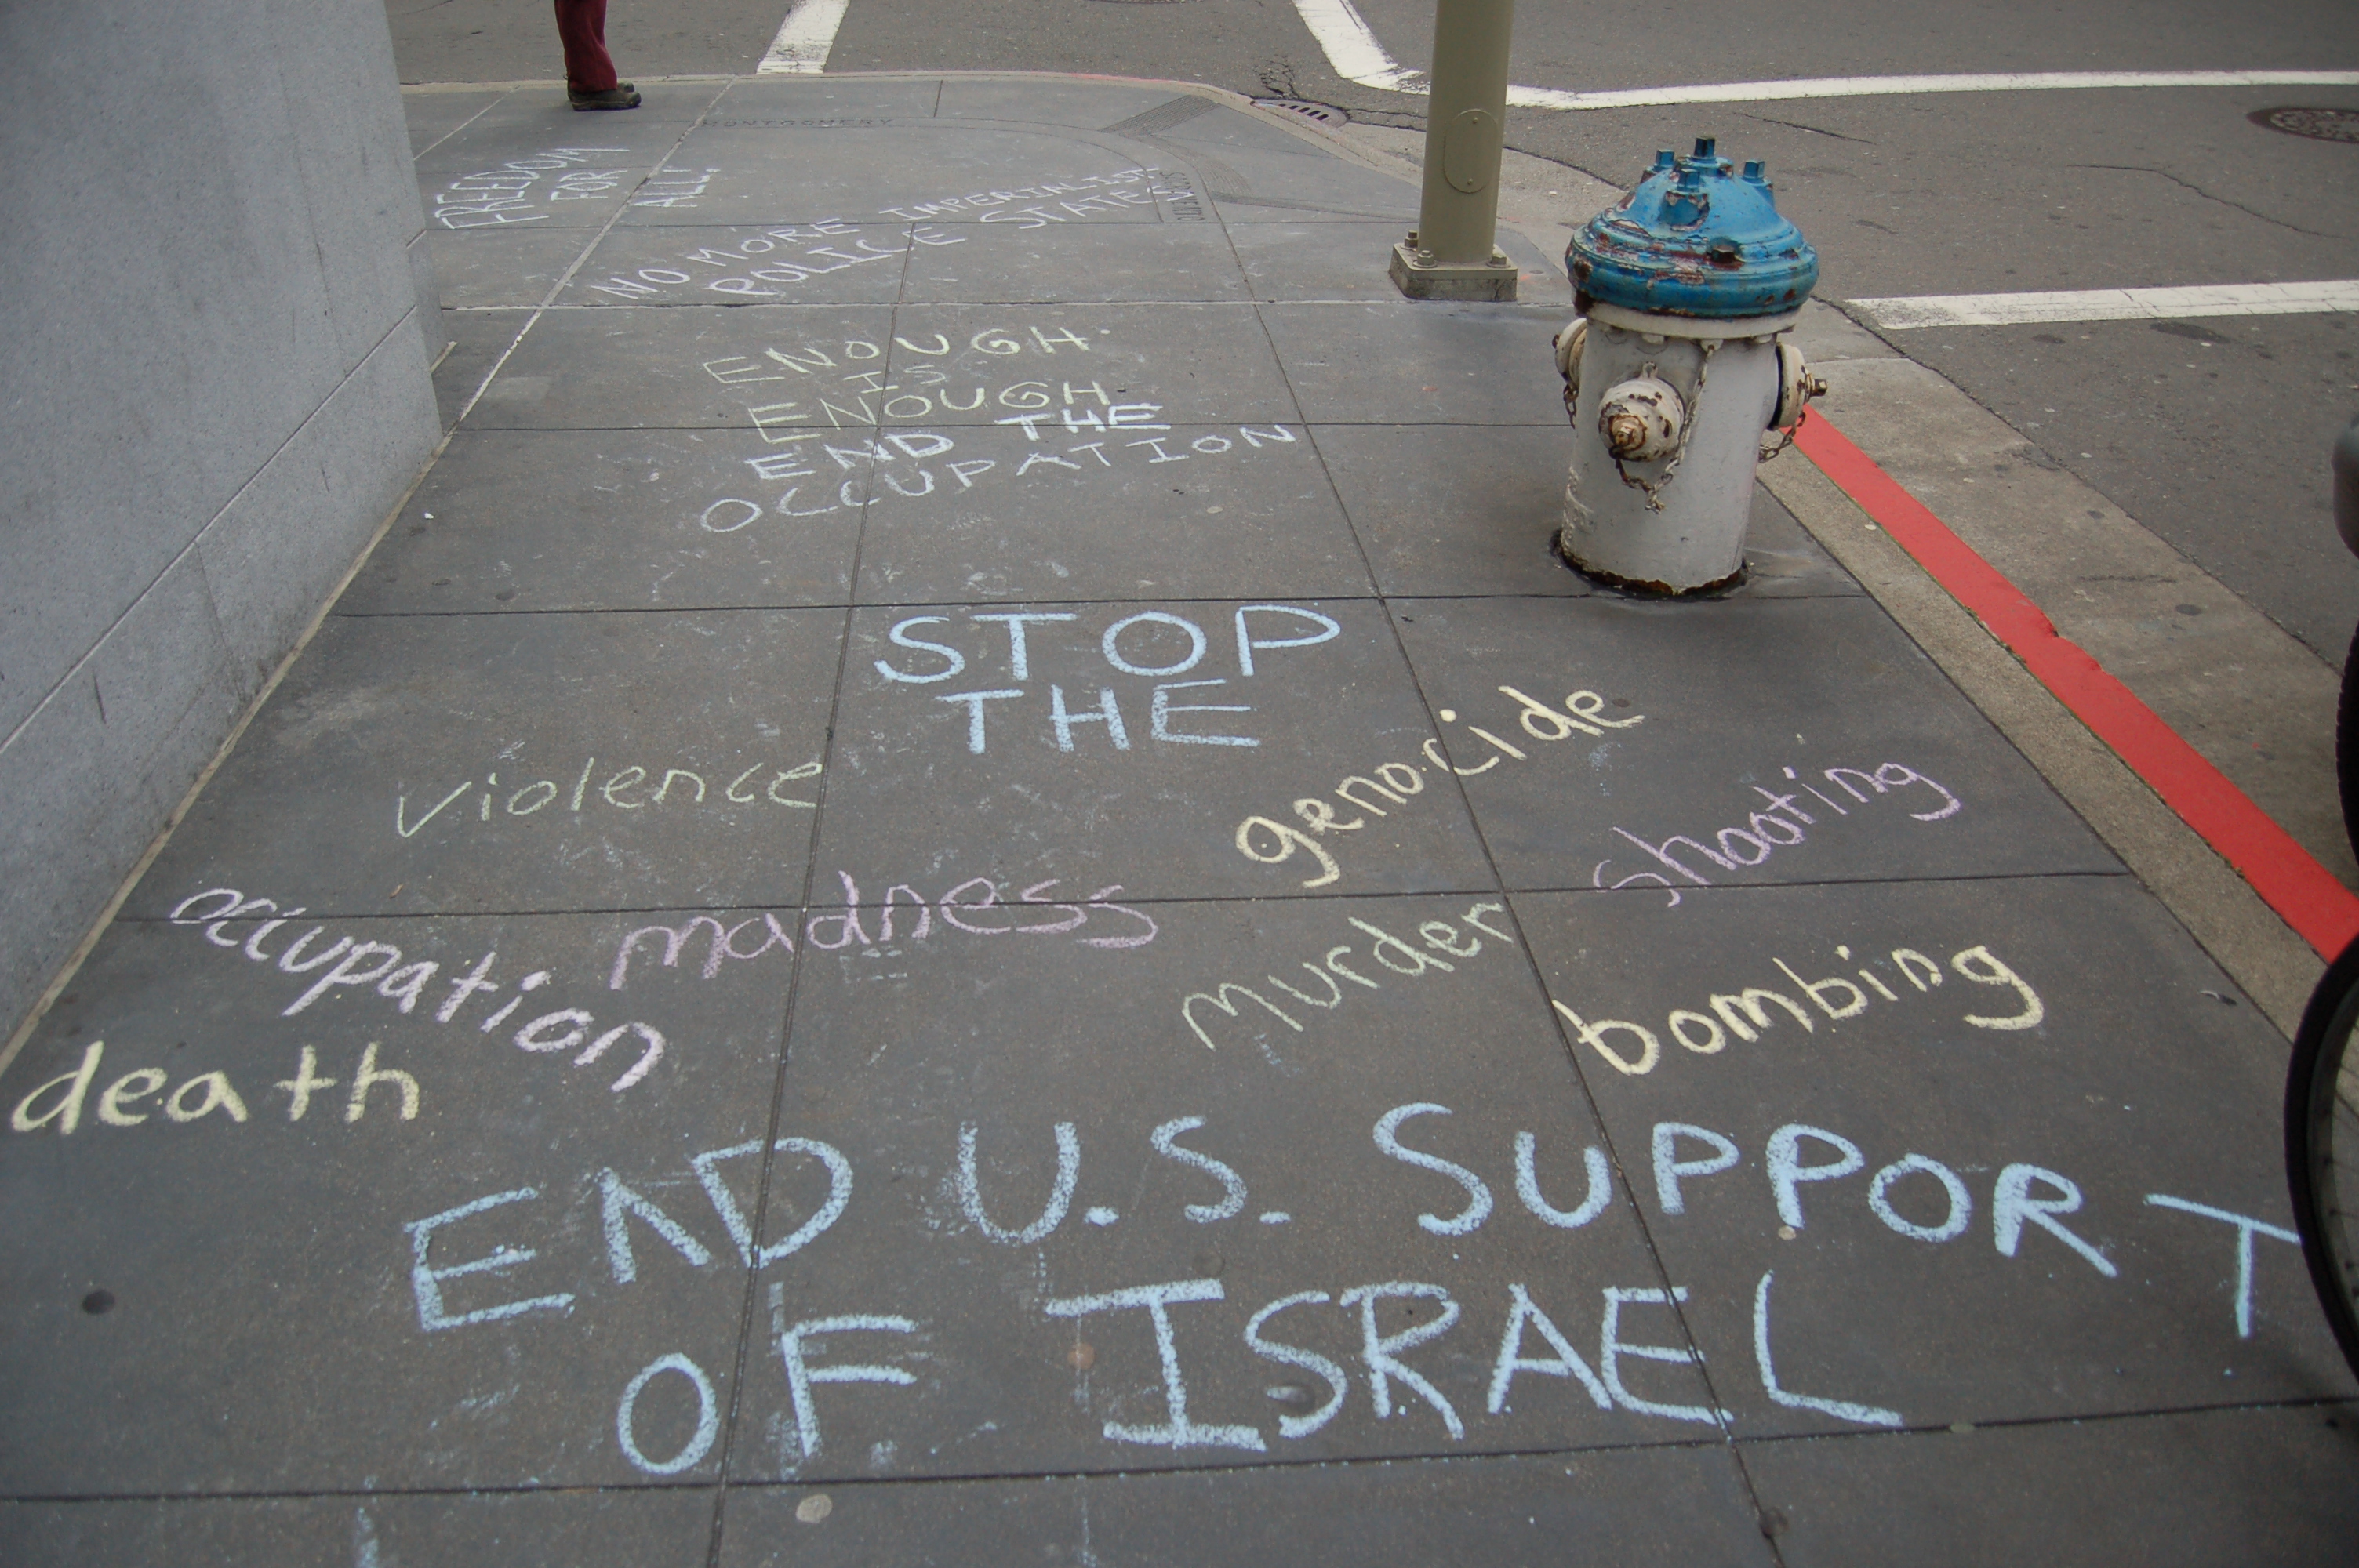 MONTGOMERY
FREEDOM
FOR
ALL!
NO MORE IMPERIALIST
POLICE STATE
ENOUGH
IS
ENOUGH
END THE
OCCUPATION
STOP
THE
violence
genocide
shooting
occupation
madness
murder
bombing
death
END U.S. SUPPORT
OF ISRAEL